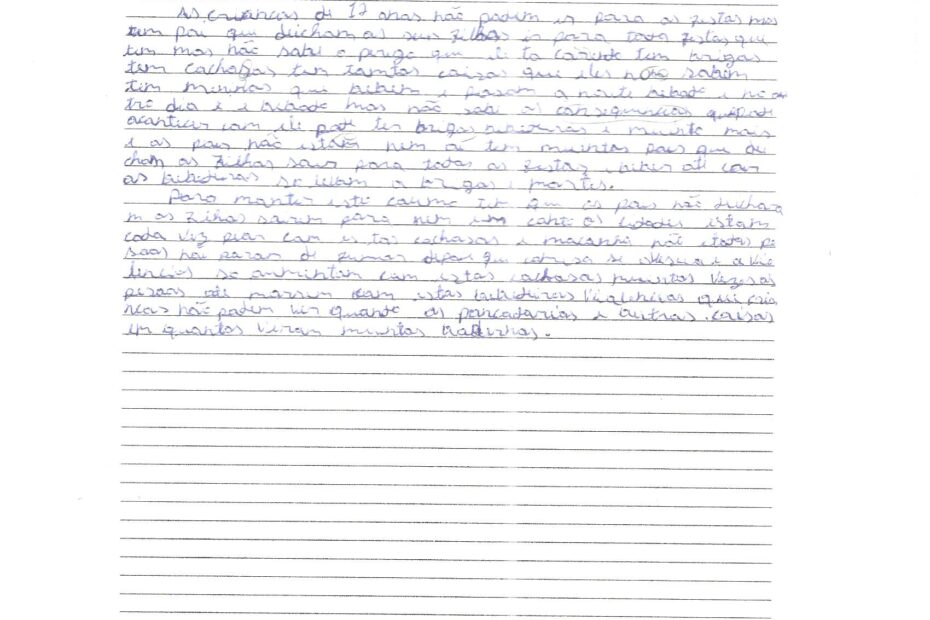 As crianças di 12 anos não podem ir para as festas mas
tem pou que deicham os seus filhos ir para toda festas que
tem mas não sabi o perigo que ele ta tem brigas
tem cachaças tem tantas coisas que eles não sabim
tim meninas que bebem i pasam a noite bebado i no ou
tro dia e i bebado mas não sabi as consequencias que pode
aconticer com ele pode ter brigas bibideiras i muinto mais
i os pais não estão nem aí tem muintos pais que dei
cham os filhos sair para todas as festas biber até cair
as bibideiras se levam a brigas i mortes.
Para manter este tem que os pais não deichar
m os filhos sairem para nem um canto as cidades estam
cada vez pior com estas cachasas i maconha não todas pe
soas não param de fumar depois que comesa se visia i a vio
lencias so aumintam com estas cachasas muintas vezes as
pesoas até morrem com estas bibideiras violencias que cria
ncas não podem ver quanto as pancadarias i outras coisas
em quantos viram muintos ladrinhos.